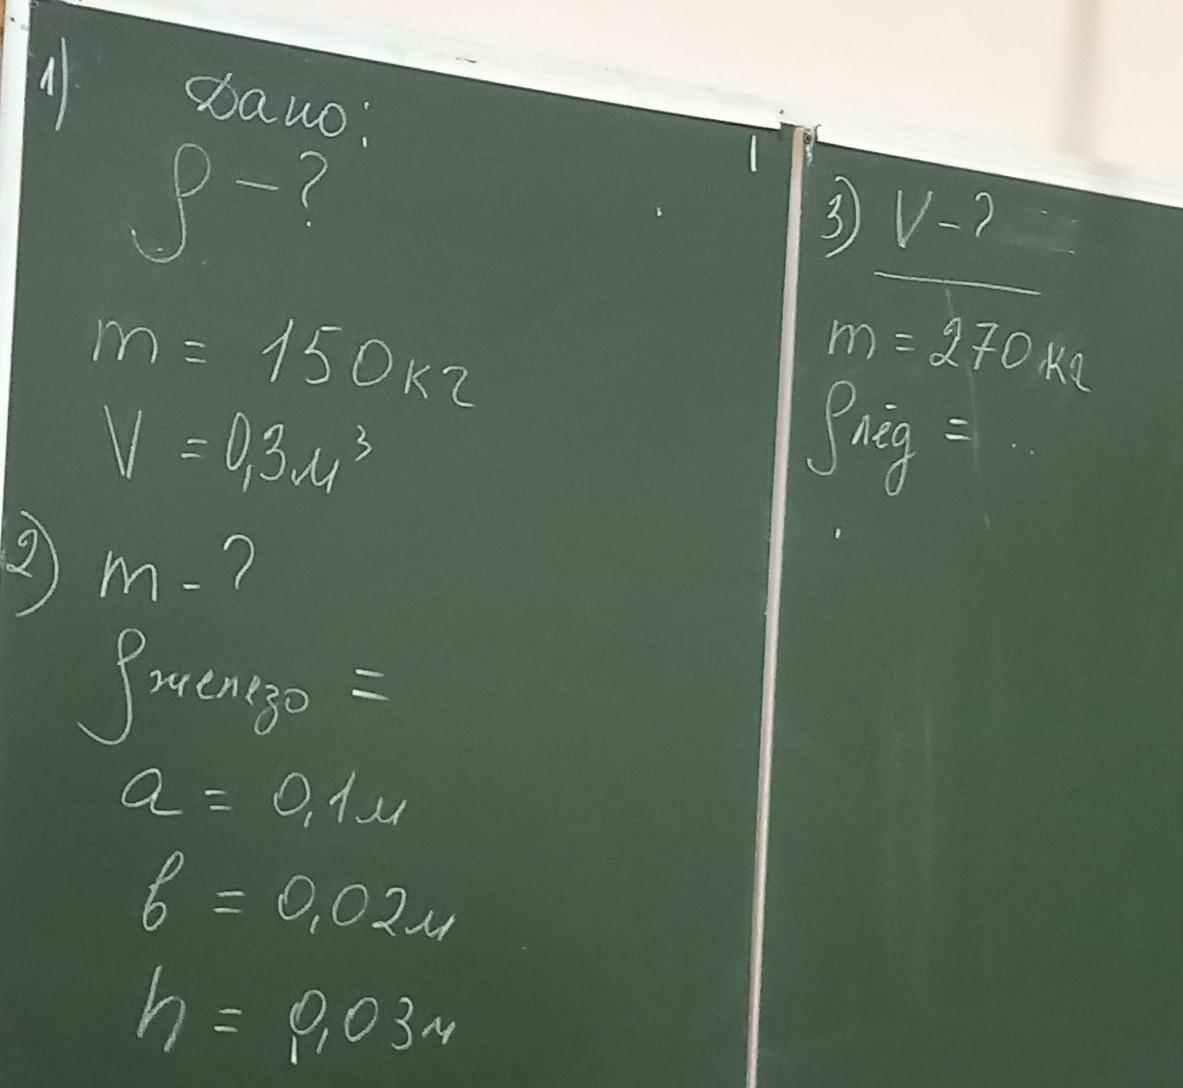 1) Дано:
ρ - ?
m = 150 кг
V = 0,3 м³
2) m - ?
ρ железо =
a = 0,1 м
в = 0,02 м
h = 0,03 м
3) V - ?
m = 270 кг
ρ лёд = ...